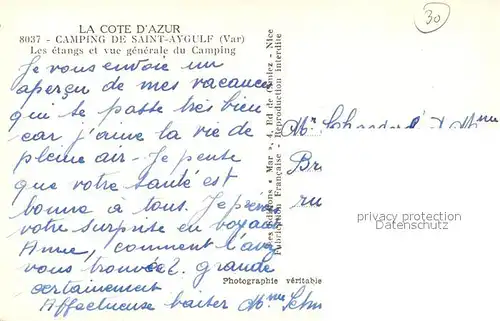 30
LA COTE D'AZUR
8037 - CAMPING DE SAINT-AYGULF (Var)
Les étangs et vue générale du Camping
Je vous envoie un
aperçu de mes vacances
qui se passe très bien
car j'aime la vie de
pleine air - Je pense
que votre santé est
bonne à tous. Je
votre surprise en voyant
Anne, comment l'avez
vous trouvée ? grande
certainement
Affectueuse baiser Mme
Les Editions « Mar », 4, Bd de Nice
Fabrication Française - Reproduction interdite
Photographie véritable
Mr & Mme
Br
ru
privacy protection
Datenschutz